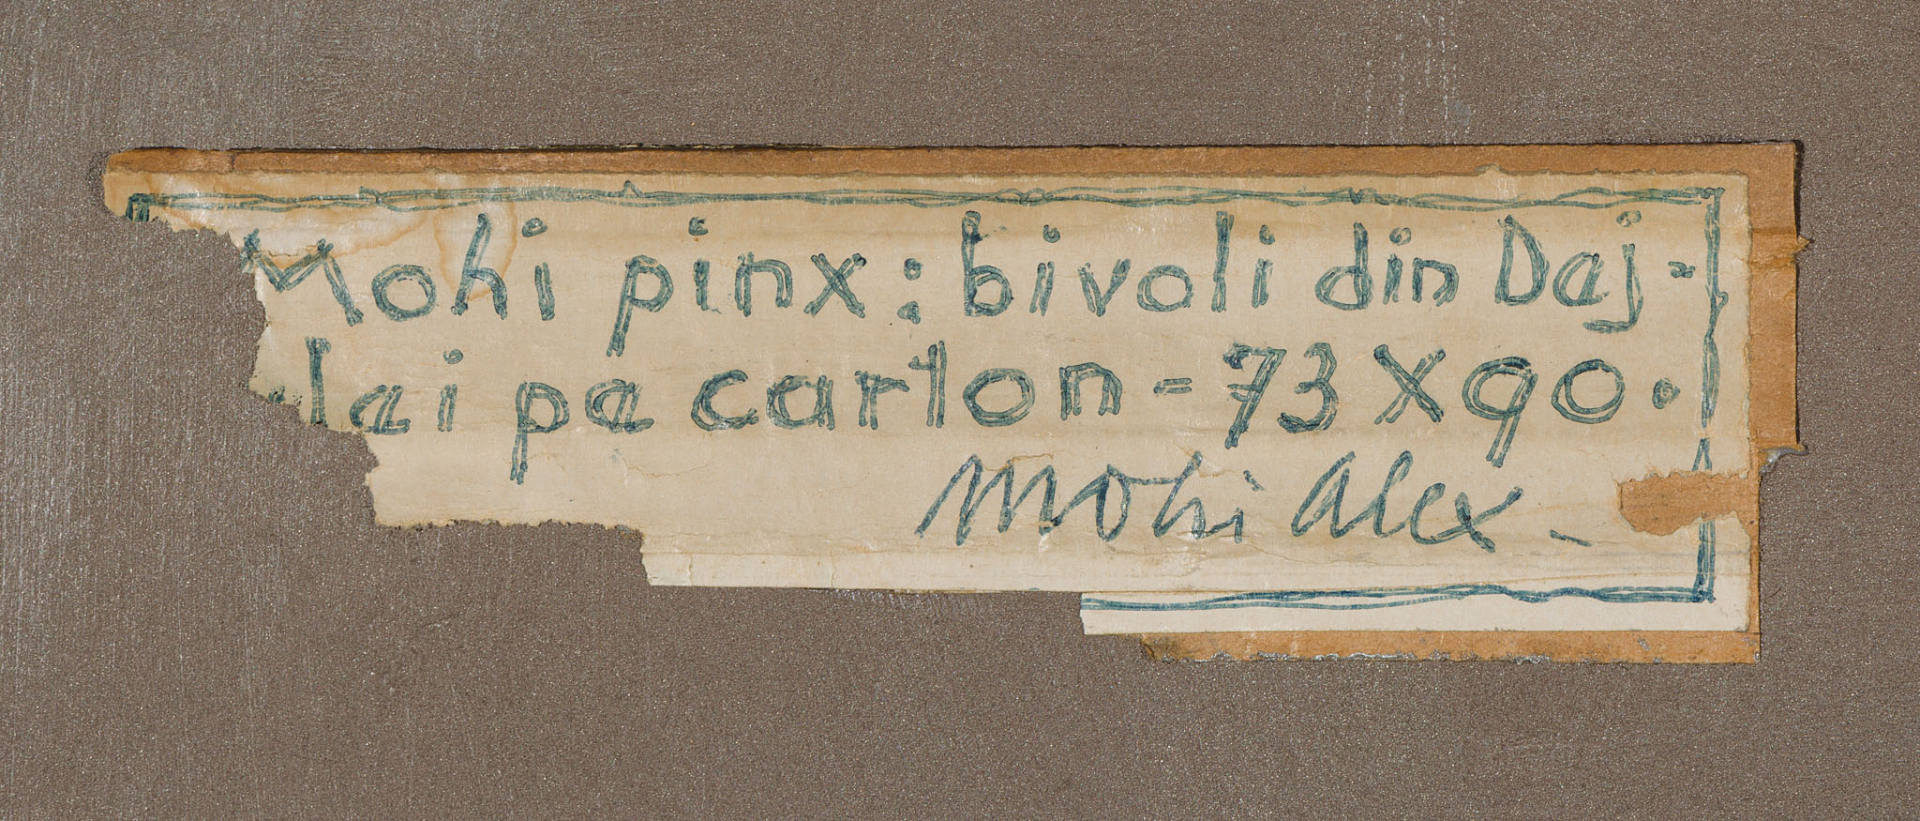 Mohi pinx: bivoli din Dej-
lei pe carton = 73 X 90.
Mohi Alex -